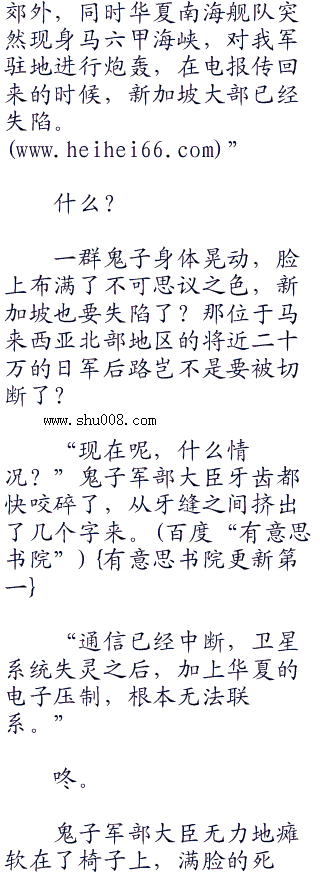 郊外，同时华夏南海舰队突
然现身马六甲海峡，对我军
驻地进行炮轰，在电报传回
来的时候，新加坡大部已经
失陷。
(www.heihei66.com)”
什么？
一群鬼子身体晃动，脸
上布满了不可思议之色，新
加坡也要失陷了？那位于马
来西亚北部地区的将近二十
万的日军后路岂不是要被切
断了？
www.shu008.com
“现在呢，什么情
况？”鬼子军部大臣牙齿都
快咬碎了，从牙缝之间挤出
了几个字来。(百度“有意思
书院”){有意思书院更新第
一}
“通信已经中断，卫星
系统失灵之后，加上华夏的
电子压制，根本无法联
系。”
咚。
鬼子军部大臣无力地瘫
软在了椅子上，满脸的死